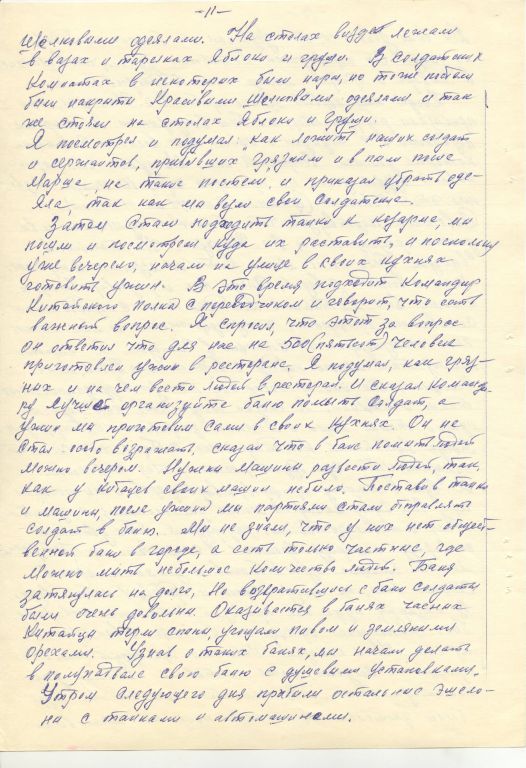 -11-
шёлковыми одеялами. На столах везде лежали
в вазах и тарелках яблоки и груши. В солдатских
комнатах в некоторых были нары, но тоже постели
были накрыты красивыми шёлковыми одеялами и так
же стояли на столах яблоки и груши.
Я посмотрел и подумал, как ложить наших солдат
и сержантов, прибывших грязными и в пыли после
марша, на такие постели, и приказал убрать одея-
яла, так как мы везли свои солдатские.
Затем стали подходить танки к казарме, мы
пошли и посмотрели куда их расставить, и поскольку
уже вечерело, начали на улице в своих кухнях
готовить ужин. В это время подходит командир
китайского полка с переводчиком и говорит, что есть
важный вопрос. Я спросил, что этот за вопрос
он ответил что для нас на 500 (пятьсот) человек
приготовлен ужин в ресторане. Я подумал, как гряз-
ных и на чем вести людей в ресторан. И сказал команди-
ру лучше организуйте баню помыть солдат, а
ужин мы приготовим сами в своих кухнях. Он не
стал особо возражать, сказал что в бане помыть людей
можно вечером. Нужны машины развести людей, так
как у китайцев своих машин небыло. Поставив танки
и машины, после ужина мы партиями стали отправлять
солдат в баню. Мы не знали, что у них нет общест-
венной бани в городе, а есть только частные, где
можно мыть небольшое количество людей. Баня
затянулась на долго, но возвратившись с бани солдаты
были очень довольны. Оказывается в банях частных
китайцы терли спины, угощали пивом и земляными
орехами. Узнав о таких банях, мы начали делать
в полуподвале свою баню с душевыми установками.
Утром следующего дня прибыли остальные эшело-
ны с танками и автомашинами.